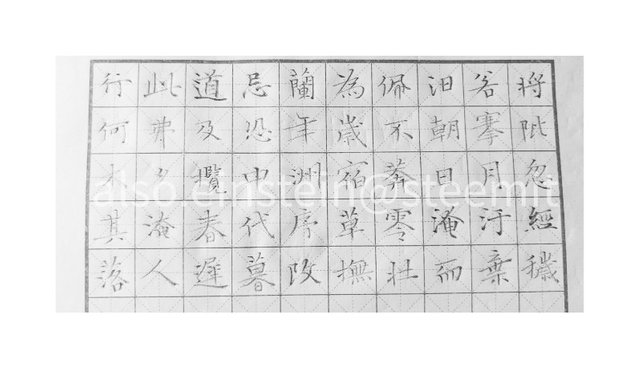 行此道忌蘭為佩汩若将
何弗及恐年歲不朝搴阰
木夕攬中洲宿莽日月忽
also.einstein@steemit
其淹春代序草零淹汙經
落人遲暮改撫壯而棄穢